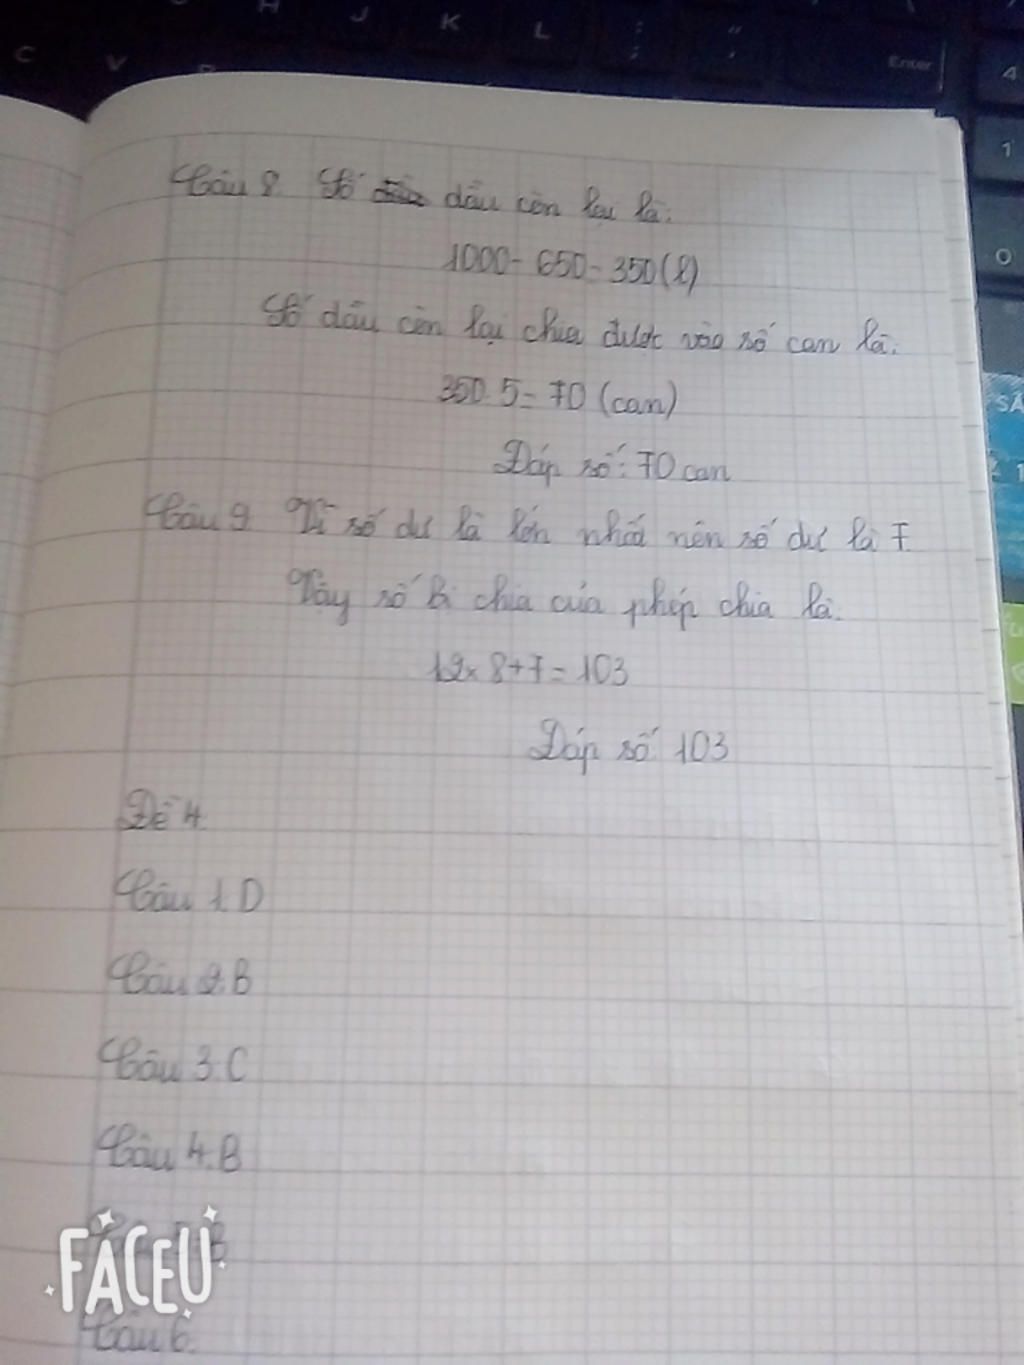 H J K L
C V
Enter
4
1
0
Câu 8. Số dầu còn lại là:
1000 - 650 = 350 (l)
Số dầu còn lại chia được vào số can là:
350 : 5 = 70 (can)
Đáp số: 70 can
Câu 9. Vì số dư là lớn nhất nên số dư là 7.
Vậy số bị chia của phép chia là:
12 x 8 + 7 = 103
Đáp số 103
Đề 4.
Câu 1. D
Câu 2. B
Câu 3. C
Câu 4. B
B
Câu 6.
FACEU